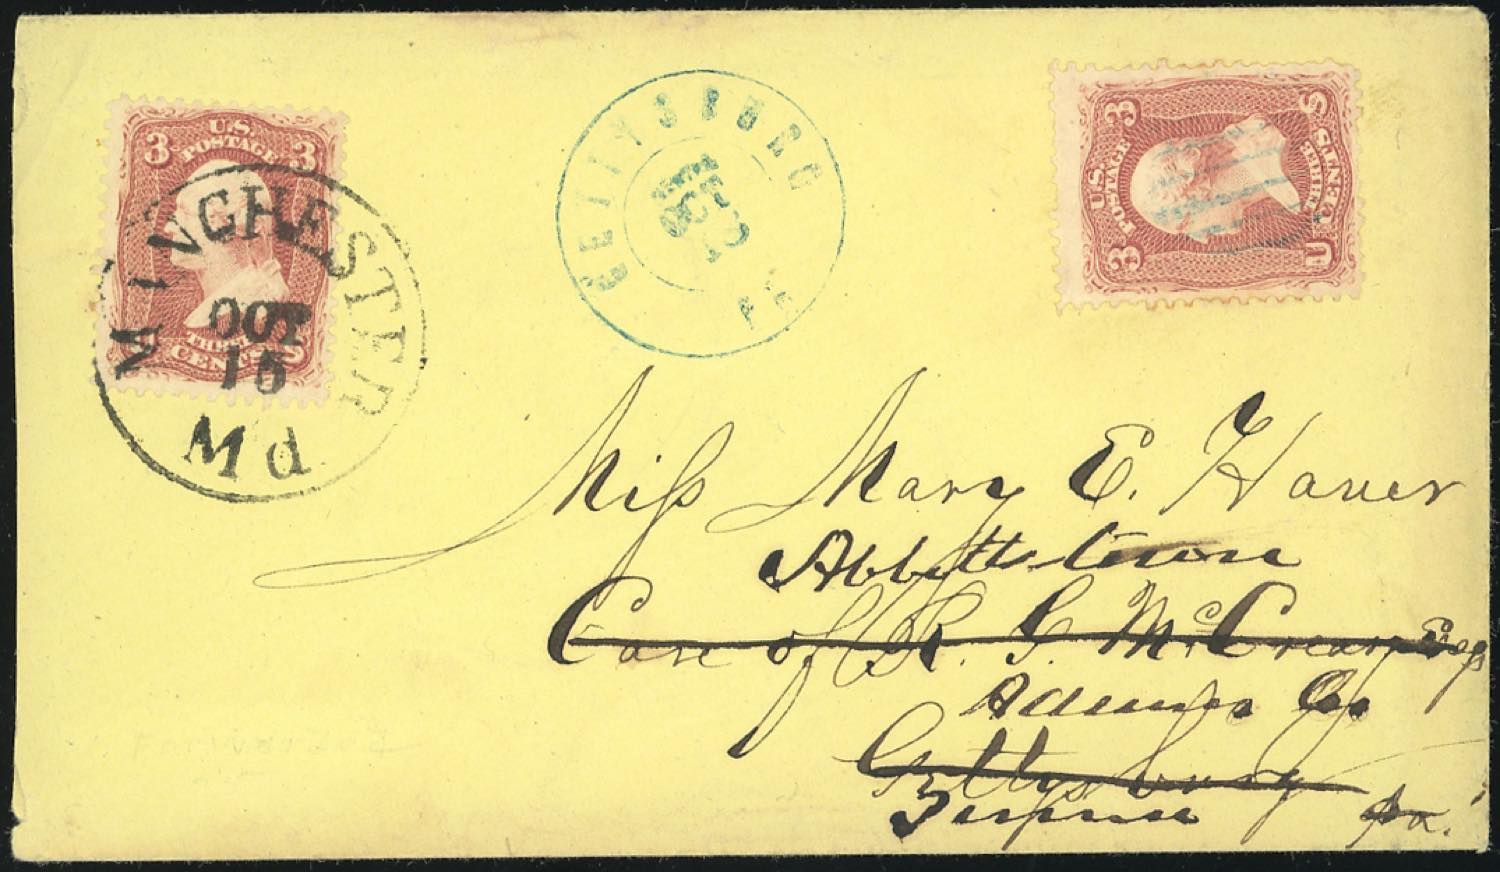 3 U.S. 3
POSTAGE
THREE
CENTS
MANCHESTER
OCT
15
Md
GETTYSBURG
OCT
PA
3 U.S. 3
POSTAGE
THREE
CENTS
U S
Miss Mary E. Haver
Abbottstown
Care of R. G. McCreary Esq
Adams Co
Gettysburg
Penna Pa.
Forwarded